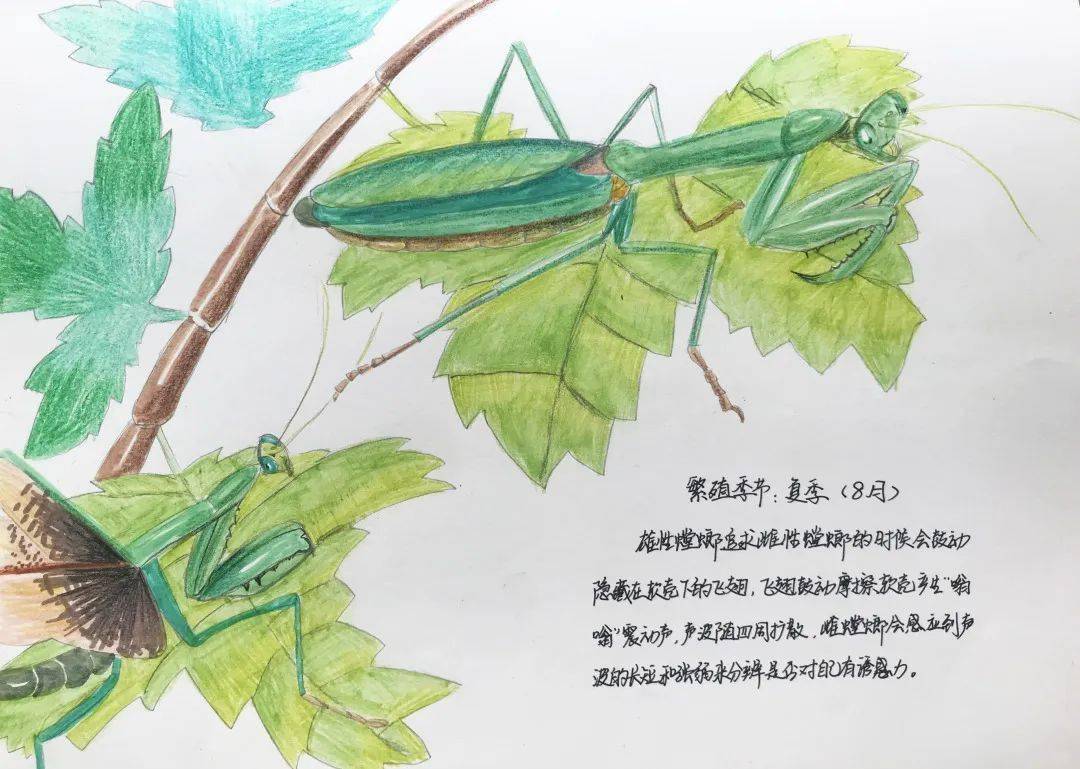 繁殖季节：夏季（8月）
雄性螳螂追求雌性螳螂的时候会鼓动
隐藏在软壳下的飞翅，飞翅鼓动摩擦软壳产生“嗡
嗡”震动声，声波随四周扩散，雌螳螂会感应到声
波的长短和强弱来分辨是否对自己有诱惑力。